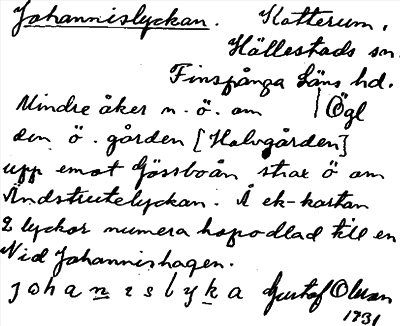 Johannislyckan. Katterum,
Hällestads sn.
Finspånga Läns hd.
Mindre åker n. ö. om | Ögl
den ö. gården [Halvgården]
upp emot Gössboån strax ö om
Ändstutelyckan. Å ek-kartan
2 lyckor numera hopodlad till en
Vid Johannishagen.
johanislyka Gustaf Olsson
1931